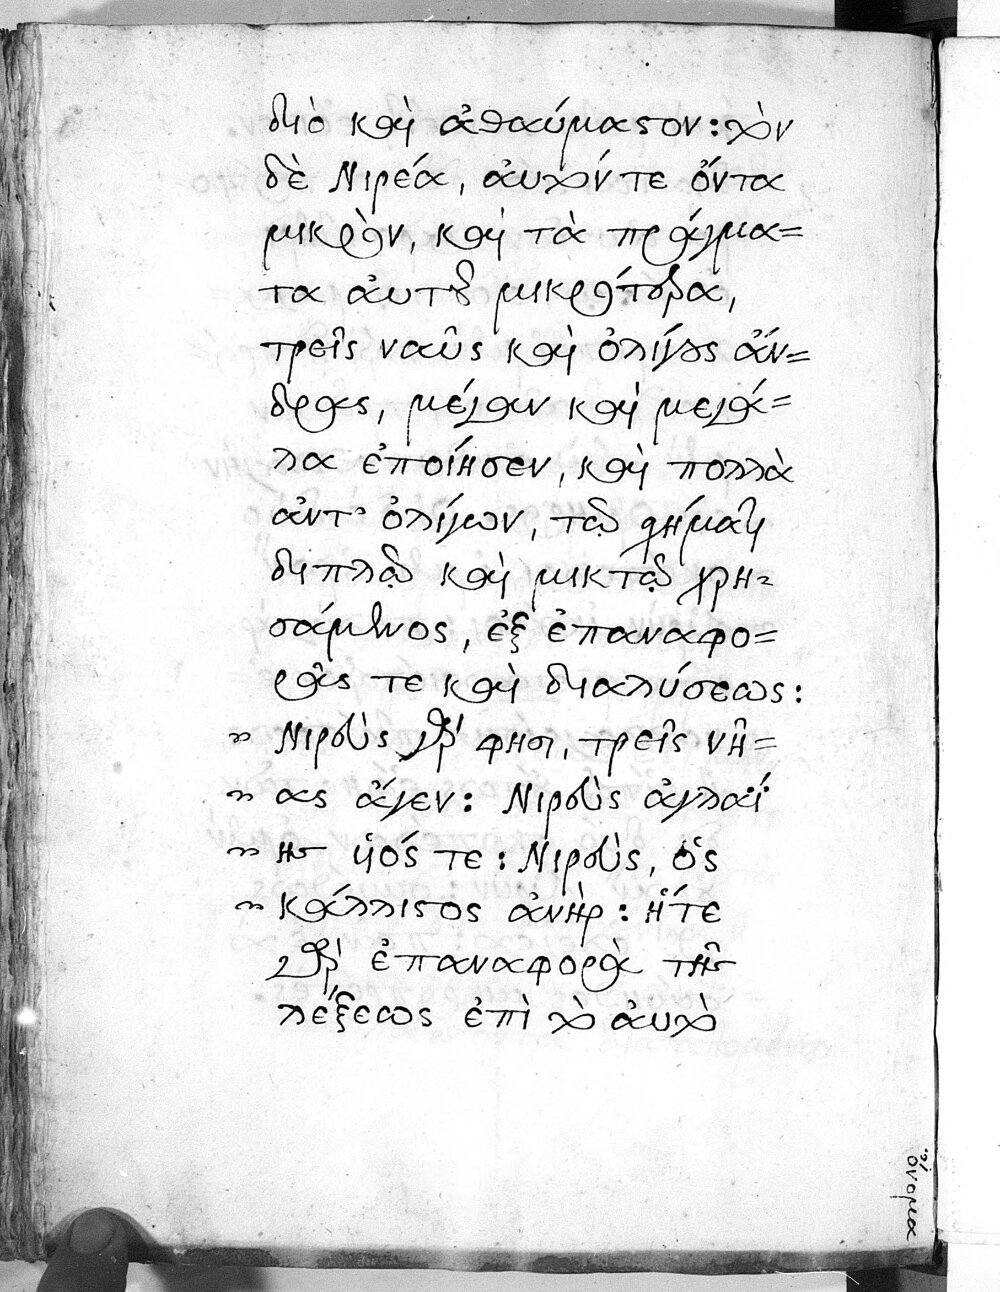 διὸ καὶ ἀθαύμαστον: τὸν
δὲ Νιρέα, ἀυτόν τε ὄντα
μικρὸν, καὶ τὰ πράγμα=
τα ἀυτοῦ μικρότερα,
τρεῖς ναῦς καὶ ὀλίγους ἄν=
δρας, μέγαν καὶ μεγά=
λα ἐποίησεν, καὶ πολλὰ
ἀντ' ὀλίγων, τῶ σχήματι
διπλῶ καὶ μικτῶ χρη=
σάμενος, ἐξ ἐπαναφο=
ρᾶς τε καὶ διαλύσεως:
Νιρεὺς γάρ φησι, τρεῖς νῆ=
ας ἄγεν: Νιρεὺς ἀγλαΐ
ης υἱός τε: Νιρεὺς, ὃς
κάλλιστος ἀνὴρ: ἥτε
γὰρ ἐπαναφορὰ τῆς
λέξεως ἐπὶ τὸ ἀυτὸ
ὄνομα